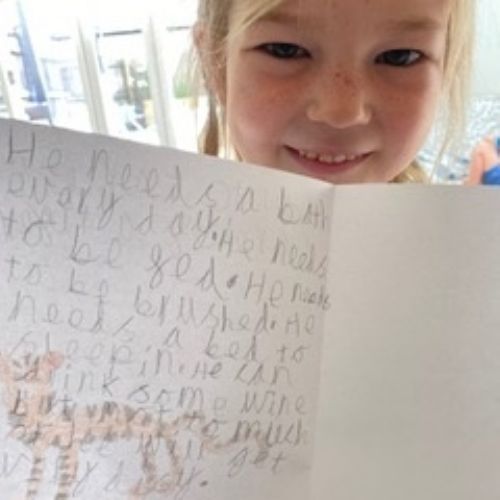 He needs a bath
evary day. He needs
to be fed. He needs
to be brushed. He
needs a bed to
sleep in. He can
drink some wine
but not to much
or he will get
vary dizy.